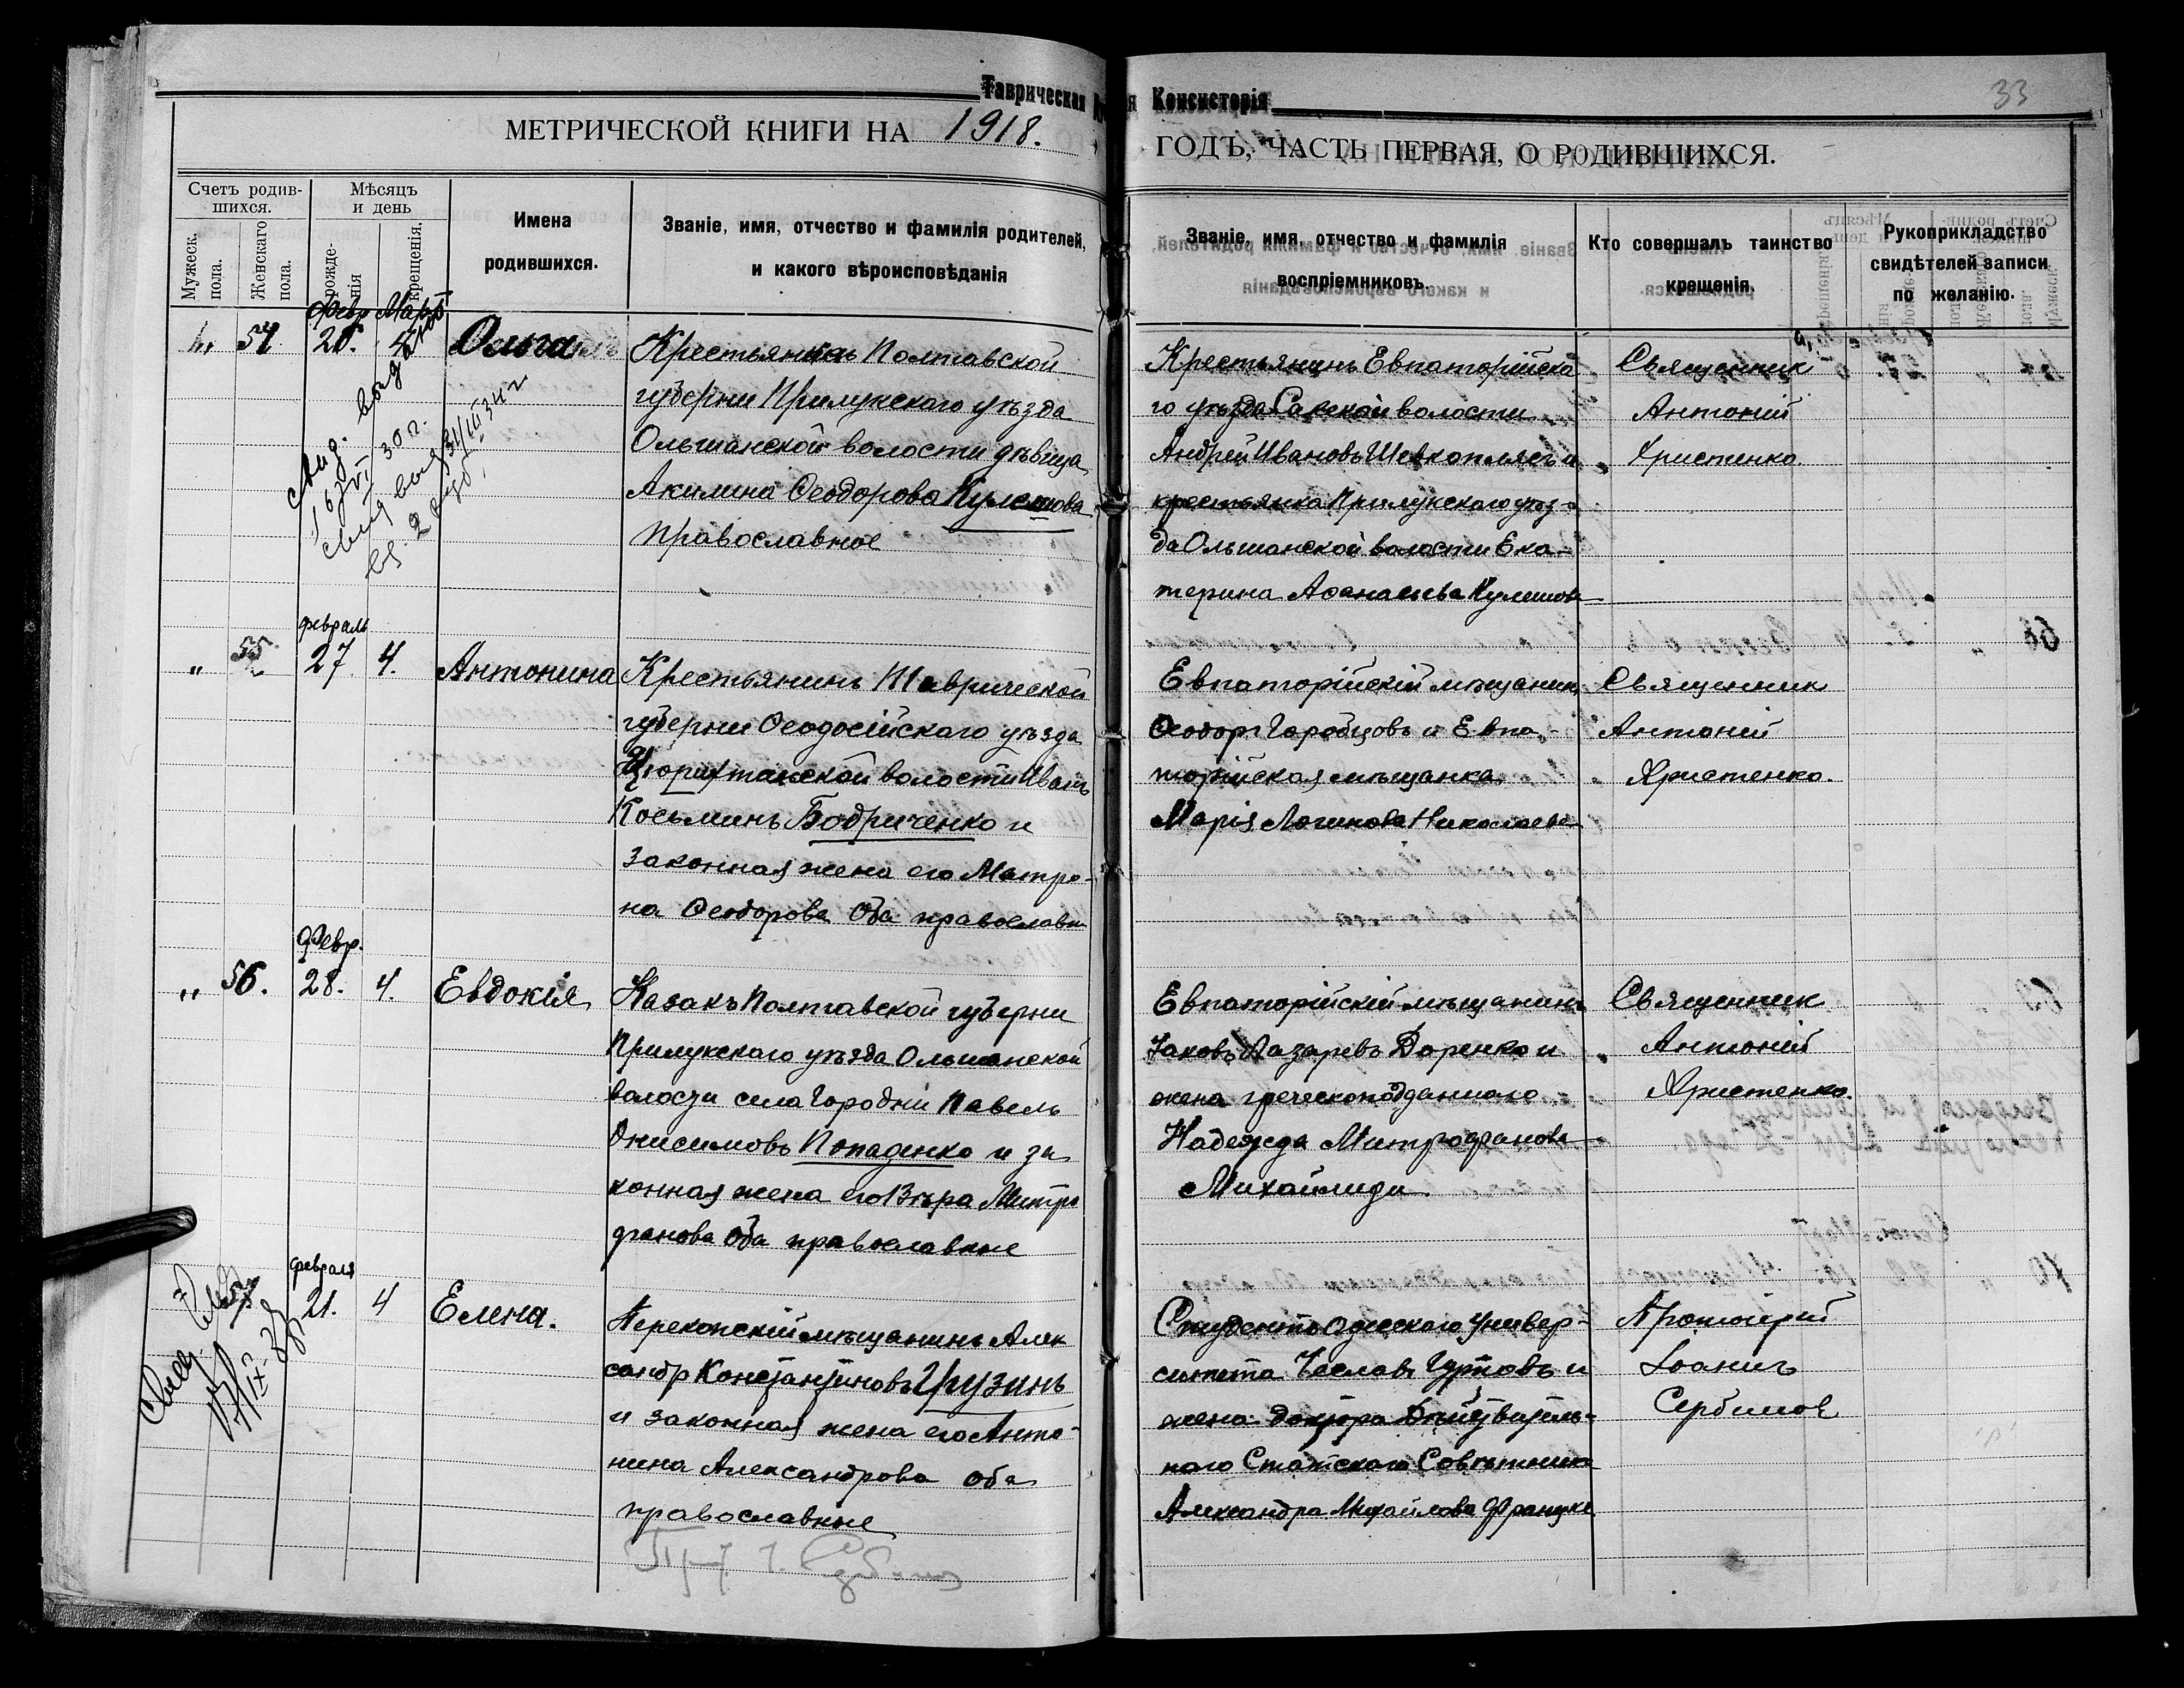 Таврическая Консисторія
33
МЕТРИЧЕСКОЙ КНИГИ НА 1918.
ГОДЪ, ЧАСТЬ ПЕРВАЯ, О РОДИВШИХСЯ.
Счетъ родив-
шихся.
Мужеск.
пола.
Женскаго
пола.
Мѣсяцъ
и день
рожде-
нія
крещенія.
Имена
родившихся.
Званіе, имя, отчество и фамилія родителей,
и какого вѣроисповѣданія
Званіе, имя, отчество и фамилія
воспріемниковъ.
Кто совершалъ таинство
крещенія.
Рукоприкладство
свидѣтелей записи
по желанію.
Февр. Мартъ
54 4. Ольга
Крестьянка Полтавской
губерни Прилукскаго уѣзда
Ольшанской волости дѣвица
Акилина Ѳеодорова Кулешова
Православное
Крестьянинъ Евпаторійска
го уѣзда Сакской волости
Андрей Ивановъ Шевкоплясъ и
крестьянка Прилукскаго уѣз-
да Ольшанской волости Ека-
терина Аѳанасьева Кулешова
Священник
Антоній
Христенко
16/VI 30 г.
свид выд 31/III 34 г
февраль
" 55 27. 4. Антонина
Крестьянинъ Таврической
губерни Ѳеодосійскаго уѣзда
волости Иванъ
Косьминъ Бодриченко и
законная жена его Матро-
на Ѳеодорова Оба православн
Евпаторійскій мѣщанин
Ѳеодоръ Горобцовъ и Евпа-
торійская мѣщанка
Марія Логинова Николаева
Священник
Антоній
Христенко.
Февр.
" 56. 28. 4. Евдокія
Казакъ Полтавской губерни
Прилукскаго уѣзда Ольшанской
волости села Городни Павелъ
Онисимовъ Попаденко и за
конная жена его Вѣра Митро
фанова Оба православные
Евпаторійскій мѣщанинъ
Іаковъ Лазаревъ Даренко и
жена греческоподданнаго
Надежда Митрофанова
Михайлиди.
Священник
Антоній
Христенко.
февраля
57 21. 4 Елена.
Перекопскій мѣщанинъ Алек
сандр Константиновъ Грузинъ
и законная жена его Анто-
нина Александрова оба
православные
Студентъ Одесскаго Универ-
ситета Чеславъ Гуртовъ и
жена доктора Дѣйствитель-
наго Статскаго Совѣтника
Александра Михайлова
Протоіерей
Іоаннъ
Сербинов